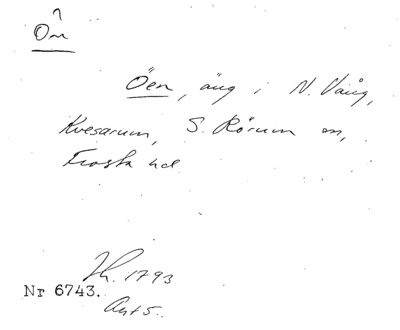 Ön
Öen, äng i N. Vång,
Kvesarum, S. Rörum sn,
Frosta hd
Nr 6743.